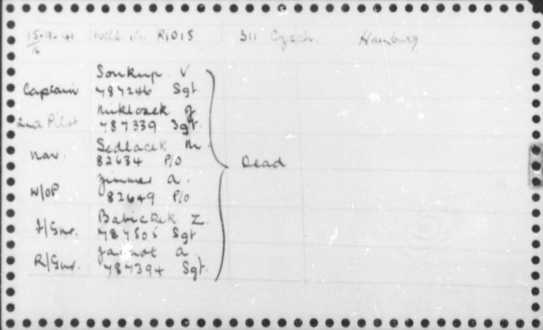 15-9-41 Well. Ic. R1015 311 Czech. Hamburg
16
Soukup. V
Captain 787246 Sgt.
Miklosek J
2nd Pilot 787339 Sgt.
Sedlacek M.
Nav. 82634 P/O
Dead
Zimmer A.
W/OP 82649 P/O
Babicek Z.
F/Gnr. 787505 Sgt
Jannot A
R/Gnr. 787394 Sgt.